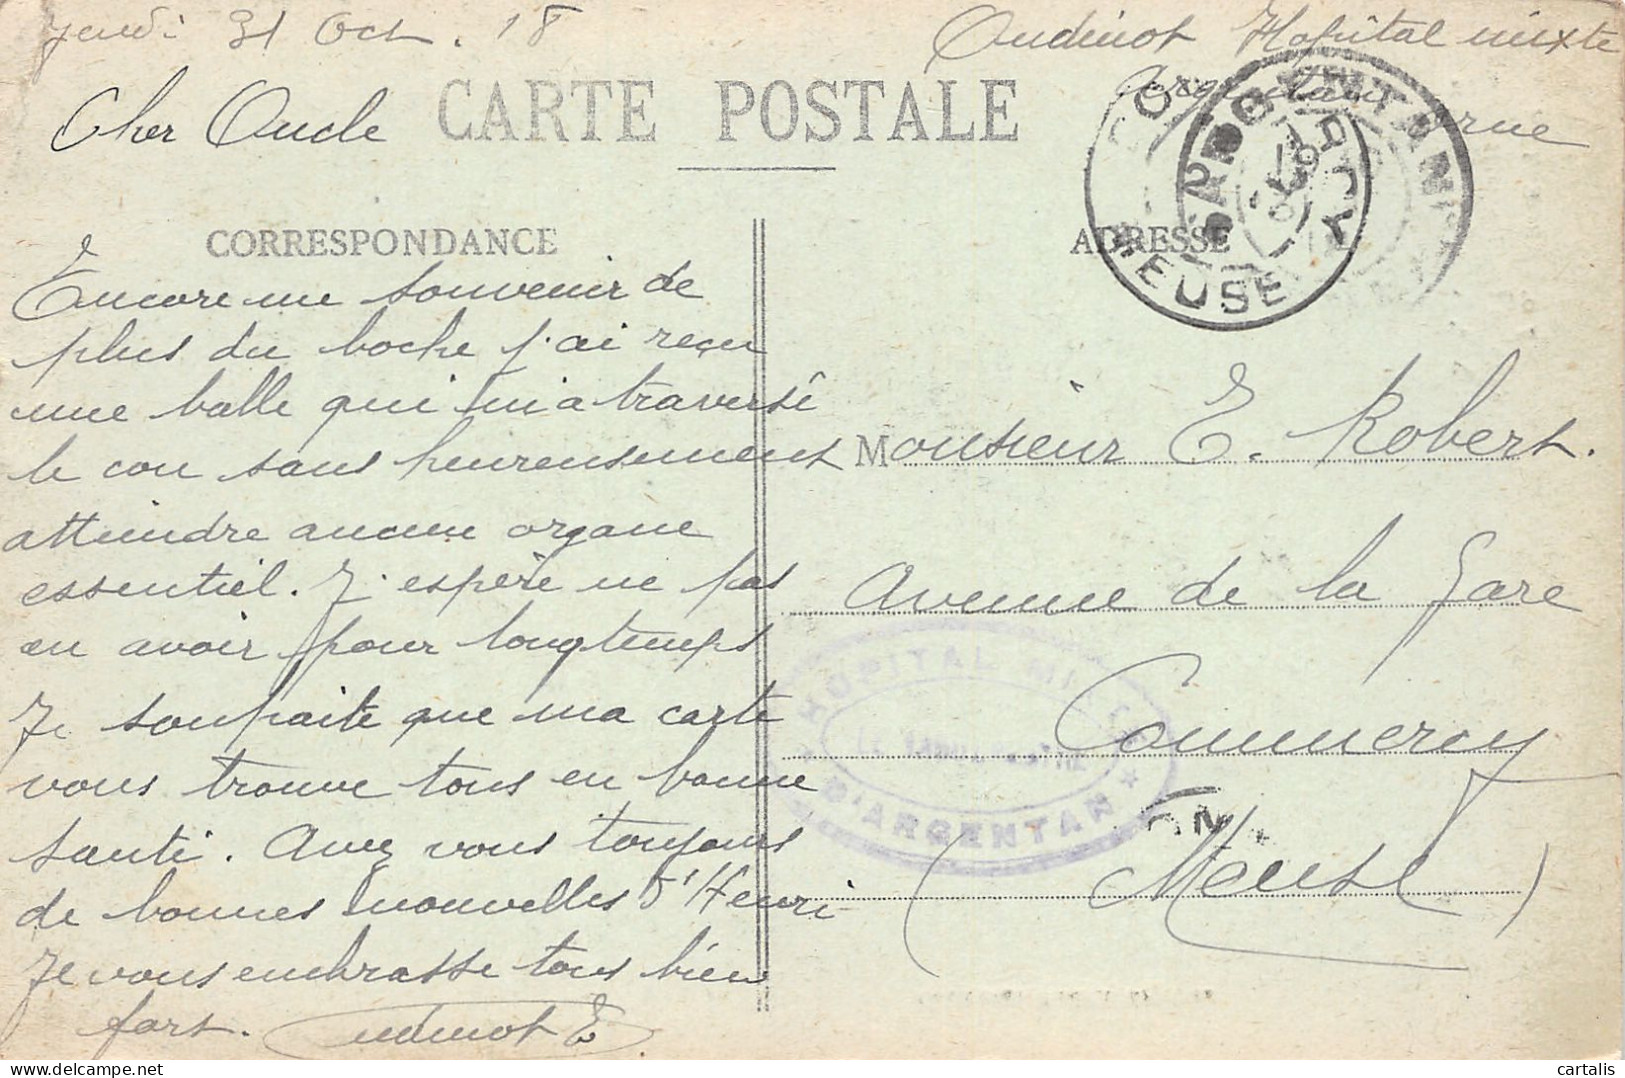 Jeudi 31 Oct. 18
Oudinot Hopital mixte
Argentan
Orne
Cher Oncle
CARTE POSTALE
CORRESPONDANCE
ADRESSE
Encore une souvenir de
plus du boche j'ai reçu
une balle qui m'a traversé
le cou sans heureusement
atteindre aucun organe
essentiel. J'espère ne pas
en avoir pour longtemps
Je souhaite que ma carte
vous trouve tous en bonne
santé. Avez vous toujours
de bonnes nouvelles d'Henri
Je vous embrasse tous bien
fort. Oudinot E
Monsieur E. Robert.
Avenue de la Gare
Commercy
(Meuse)
ARGENTAN
MEUSE
HOPITAL MIXTE
D'ARGENTAN
cartalis
delcampe.net